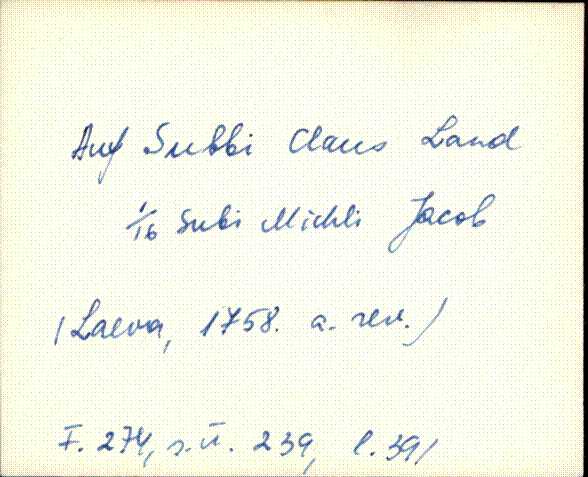 Auf Subbi Claus Land
1/16 Subi Michli Jacob
/Laeva, 1758. a. rev./
F. 274, s.-ü. 239, l. 39/